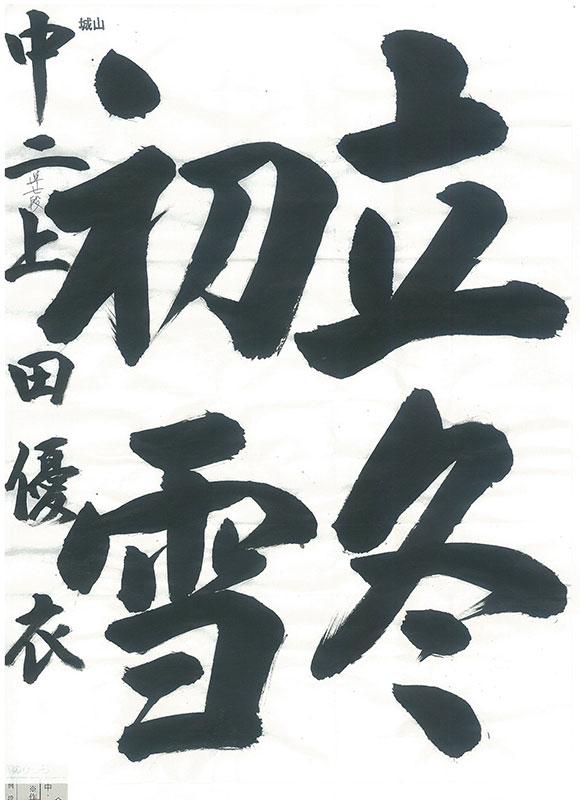 立冬
初雪
城山
中二上田優衣
準七段